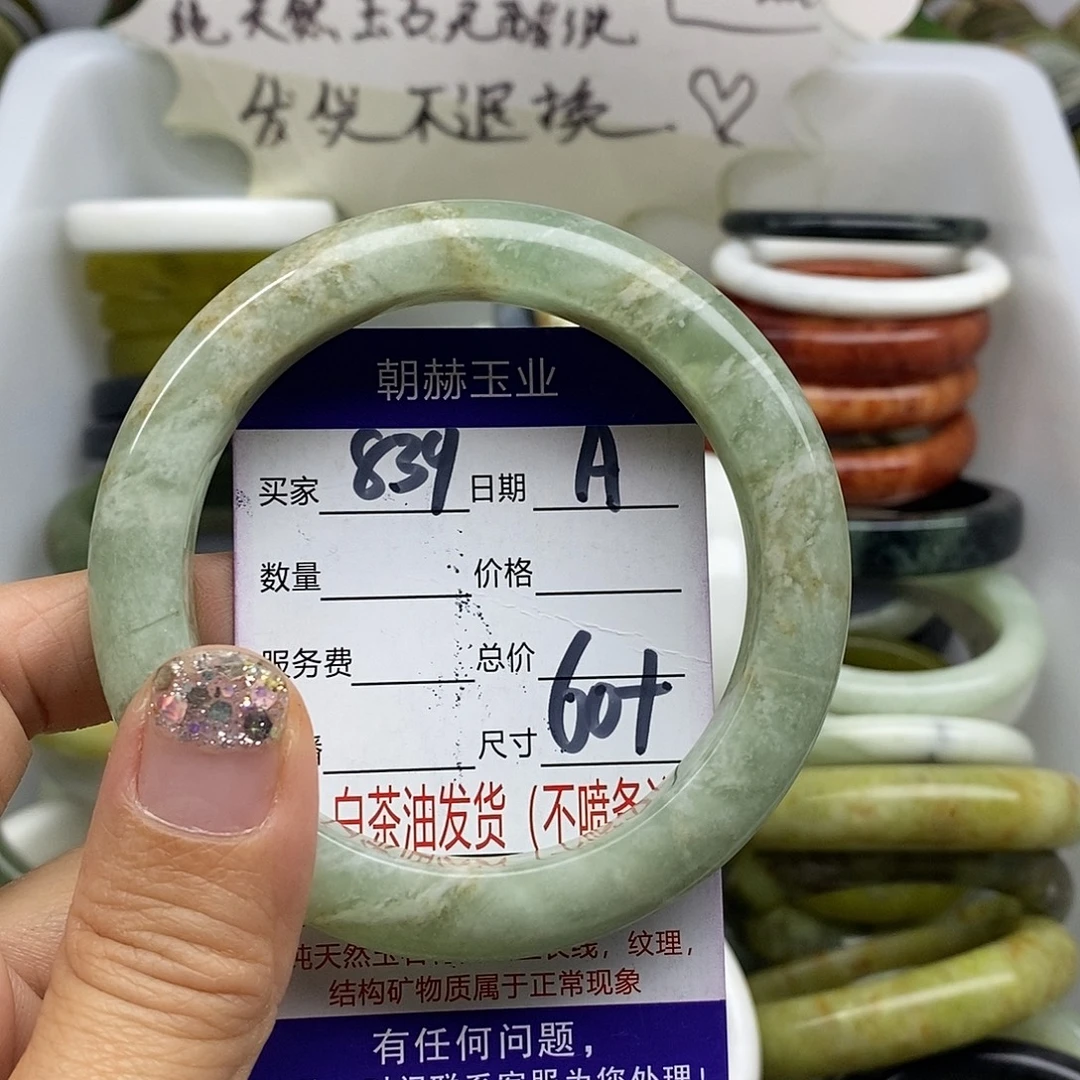 纯天然玉石无酸洗
发货不退换
朝赫玉业
买家 839 日期 A
数量 价格
服务费 总价
尺寸 60+
白茶油发货（不喷条
纯天然玉石 长线，纹理，
结构矿物质属于正常现象
有任何问题，
联系客服为您处理！